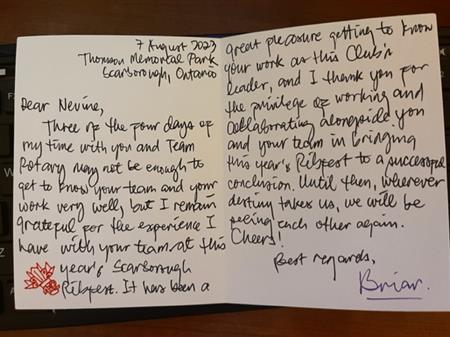 7 August 2023
Thomson Memorial Park
Scarborough, Ontario
Dear Nevine,
Three of the four days of
my time with you and Team
Rotary may not be enough to
get to know your team and your
work very well, but I remain
grateful for the experience I
have with your team at this
year's Scarborough
Ribfest. It has been a
great pleasure getting to know
your work as this Club's
leader, and I thank you for
the privilege of working and
collaborating alongside you
and your team in bringing
this year's Ribfest to a successful
conclusion. Until then, wherever
destiny takes us, we will be
seeing each other again.
Cheers!
Best regards,
Briar.